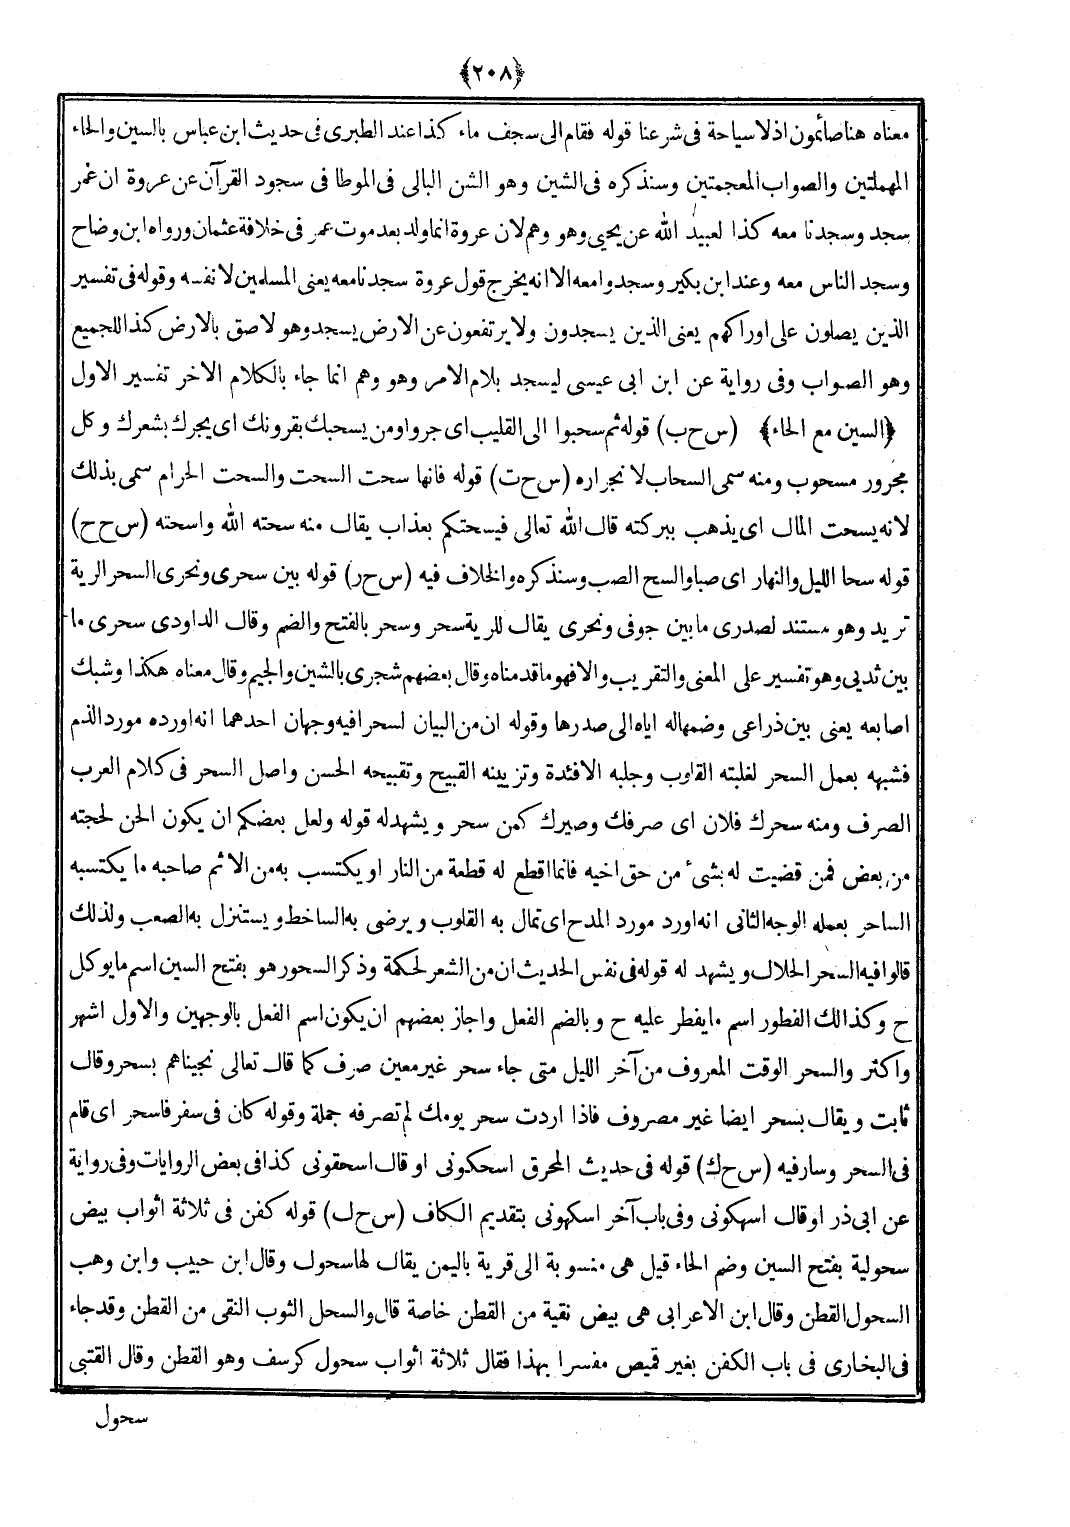 ﴿٢٠٨﴾
معناه هنا صائمون اذ لا سياحة فى شرعنا قوله فقام الى سجف ماء كذا عند الطبرى فى حديث ابن عباس بالسين والحاء
المهملتين والصواب المعجمتين وسنذكره فى الشين وهو الشن البالى فى الموطا فى سجود القرآن عن عروة ان عمر
سجد وسجدنا معه كذا لعبيد الله عن يحيى وهو وهم لان عروة انما ولد بعد موت عمر فى خلافة عثمان ورواه ابن وضاح
وسجد الناس معه وعند ابن بكير وسجدوا معه الا انه يخرج قول عروة سجدنا معه يعنى المسلمين لا نفسه وقوله فى تفسير
الذين يصلون على اوراكهم يعنى الذين يسجدون ولا يرتفعون عن الارض يسجد وهو لاصق بالارض كذا للجميع
وهو الصواب وفى رواية عن ابن ابى عيسى ليسجد بلام الامر وهو وهم انما جاء بالكلام الاخر تفسير الاول
﴿السين مع الحاء﴾ (س ح ب) قوله ثم سحبوا الى القليب اى جروا ومن يسحبك بقرونك اى يجرك بشعرك وكل
مجرور مسحوب ومنه سمى السحاب لانجراره (س ح ت) قوله فانها سحت السحت والسحت الحرام سمى بذلك
لانه يسحت المال اى يذهب ببركته قال الله تعالى فيسحتكم بعذاب يقال منه سحته الله واسحته (س ح ح)
قوله سحا الليل والنهار اى صبا والسح الصب وسنذكره والخلاف فيه (س ح ر) قوله بين سحرى ونحرى السحر الرية
تريد وهو مستند لصدرى ما بين جوفى ونحرى يقال للرية سحر وسحر بالفتح والضم وقال الداودى سحرى ما
بين ثديى وهو تفسير على المعنى والتقريب والا فهو ما قدمناه وقال بعضهم شجرى بالشين والجيم وقال معناه هكذا وشبك
اصابعه يعنى بين ذراعى وضمها له اياه الى صدرها وقوله ان من البيان لسحرا فيه وجهان احدهما انه اورده مورد الذم
فشبهه بعمل السحر لغلبته القلوب وجلبه الافئدة وتزيينه القبيح وتقبيحه الحسن واصل السحر فى كلام العرب
الصرف ومنه سحرك فلان اى صرفك وصيرك كمن سحر ويشهد له قوله ولعل بعضكم ان يكون الحن لحجته
من بعض فمن قضيت له بشئ من حق اخيه فانما اقطع له قطعة من النار او يكتسب به من الاثم صاحبه ما يكتسبه
الساحر بعمله الوجه الثانى انه اورد مورد المدح اى تمال به القلوب ويرضى به الساخط ويستنزل به الصعب ولذلك
قالوا فيه السحر الحلال ويشهد له قوله فى نفس الحديث ان من الشعر لحكمة وذكر السحور هو بفتح السين اسم ما يوكل
ح وكذالك الفطور اسم ما يفطر عليه ح وبالضم الفعل واجاز بعضهم ان يكون اسم الفعل بالوجهين والاول اشهر
واكثر والسحر الوقت المعروف من آخر الليل متى جاء سحر غير معين صرف كما قال تعالى نجيناهم بسحر وقال
ثابت ويقال بسحر ايضا غير مصروف فاذا اردت سحر يومك لم تصرفه جملة وقوله كان فى سفر فاسحر اى قام
فى السحر وسار فيه (س ح ك) قوله فى حديث المحرق اسحكونى او قال اسحقونى كذا فى بعض الروايات وفى رواية
عن ابى ذر او قال اسهكونى وفى باب آخر اسكهونى بتقديم الكاف (س ح ل) قوله كفن فى ثلاثة اثواب بيض
سحولية بفتح السين وضم الحاء قيل هى منسوبة الى قرية باليمن يقال لها سحول وقال ابن حبيب وابن وهب
السحول القطن وقال ابن الاعرابى هى بيض نقية من القطن خاصة قال والسحل الثوب النقى من القطن وقد جاء
فى البخارى فى باب الكفن بغير قميص مفسرا بهذا فقال ثلاثة اثواب سحول كرسف وهو القطن وقال القتبى
سحول